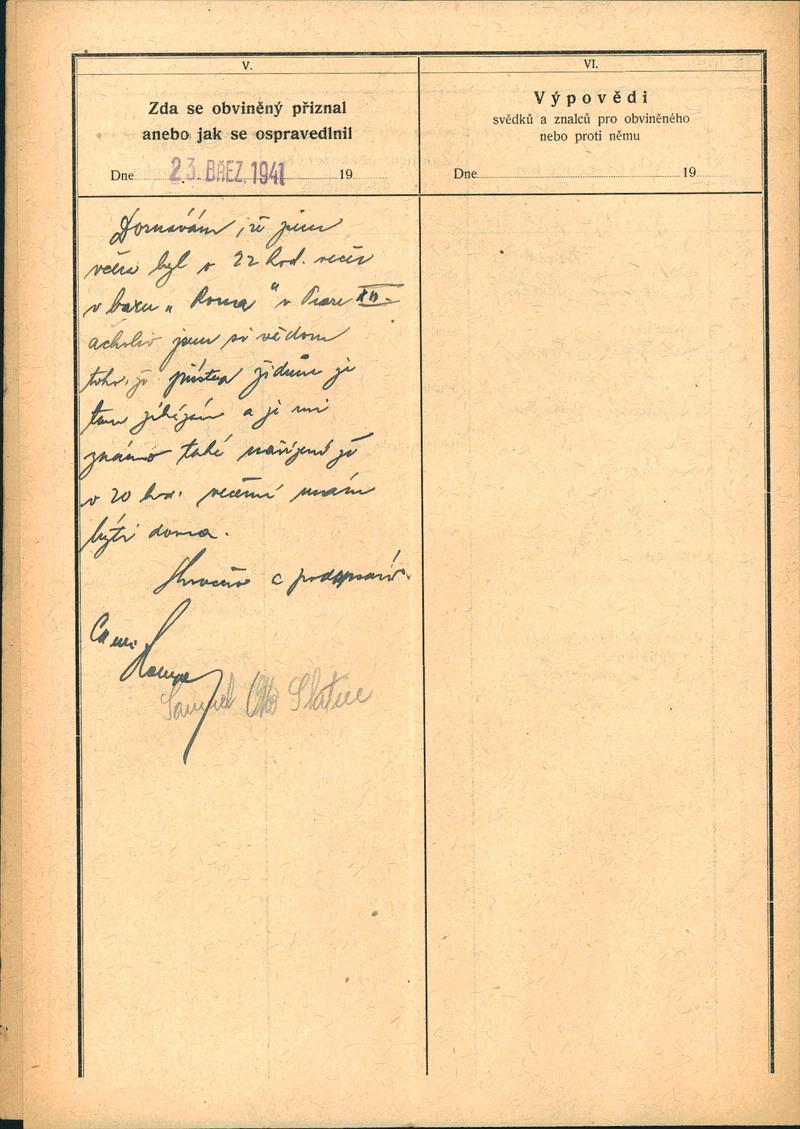 V.
Zda se obviněný přiznal
anebo jak se ospravedlnil
Dne 23. BŘEZ. 1941 19
VI.
Výpovědi
svědků a znalců pro obviněného
nebo proti němu
Dne 19
Doznávám, že jsem
včera byl o 22 hod. večer
v baru „Roma" v Praze
ačkoliv jsem si vědom
toho, že přístup židům je
tam zakázán a je mi
známo také nařízení že
v 20 hod. večerní mám
býti doma.
Skončeno a podepsáno.
Samuel Otto